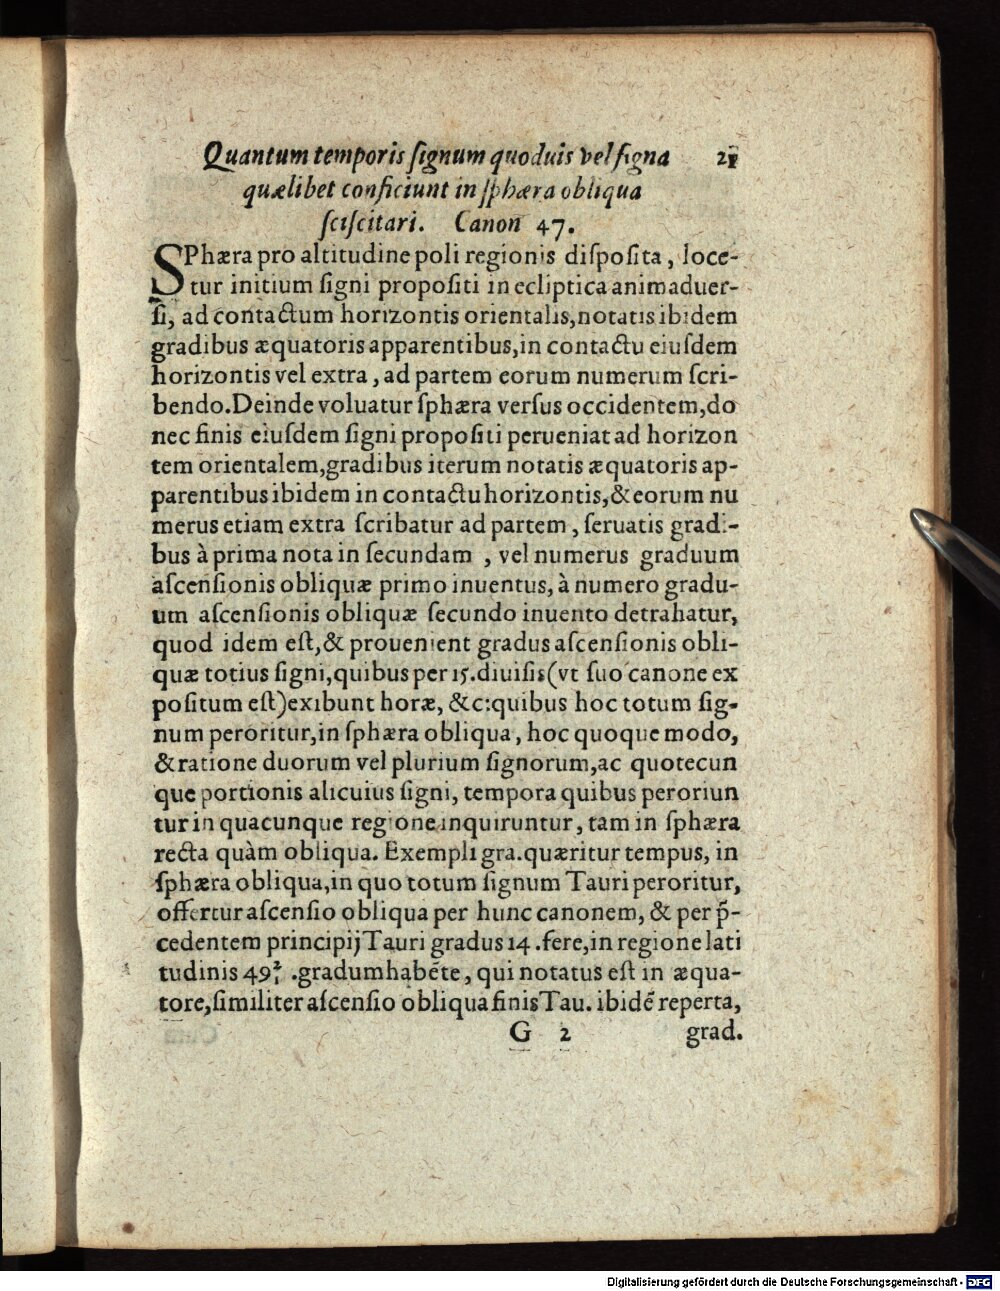 Quantum temporis ſignum quoduis vel ſigna 21
quælibet conficiunt in ſphæra obliqua
ſciſcitari. Canon 47.
SPhæra pro altitudine poli regionis diſpoſita, loce-
tur initium ſigni propoſiti in ecliptica animaduer-
ſi, ad contactum horizontis orientalis, notatis ibidem
gradibus æquatoris apparentibus, in contactu eiuſdem
horizontis vel extra, ad partem eorum numerum ſcri-
bendo. Deinde voluatur ſphæra verſus occidentem, do
nec finis eiuſdem ſigni propoſiti perueniat ad horizon
tem orientalem, gradibus iterum notatis æquatoris ap-
parentibus ibidem in contactu horizontis, & eorum nu
merus etiam extra ſcribatur ad partem, ſeruatis gradi-
bus à prima nota in ſecundam, vel numerus graduum
aſcenſionis obliquæ primo inuentus, à numero gradu-
um aſcenſionis obliquæ ſecundo inuento detrahatur,
quod idem eſt, & prouenient gradus aſcenſionis obli-
quæ totius ſigni, quibus per 15. diuiſis (vt ſuo canone ex
poſitum eſt) exibunt horæ, &c: quibus hoc totum ſig-
num peroritur, in ſphæra obliqua, hoc quoque modo,
& ratione duorum vel plurium ſignorum, ac quotecun
que portionis alicuius ſigni, tempora quibus peroriun
tur in quacunque regione inquiruntur, tam in ſphæra
recta quàm obliqua. Exempli gra. quæritur tempus, in
ſphæra obliqua, in quo totum ſignum Tauri peroritur,
offertur aſcenſio obliqua per hunc canonem, & per p̃-
cedentem principij Tauri gradus 14. fere, in regione lati
tudinis 49 . gradum habẽte, qui notatus eſt in æqua-
tore, ſimiliter aſcenſio obliqua finis Tau. ibidẽ reperta,
G 2 grad.
Digitalisierung gefördert durch die Deutsche Forschungsgemeinschaft - DFG